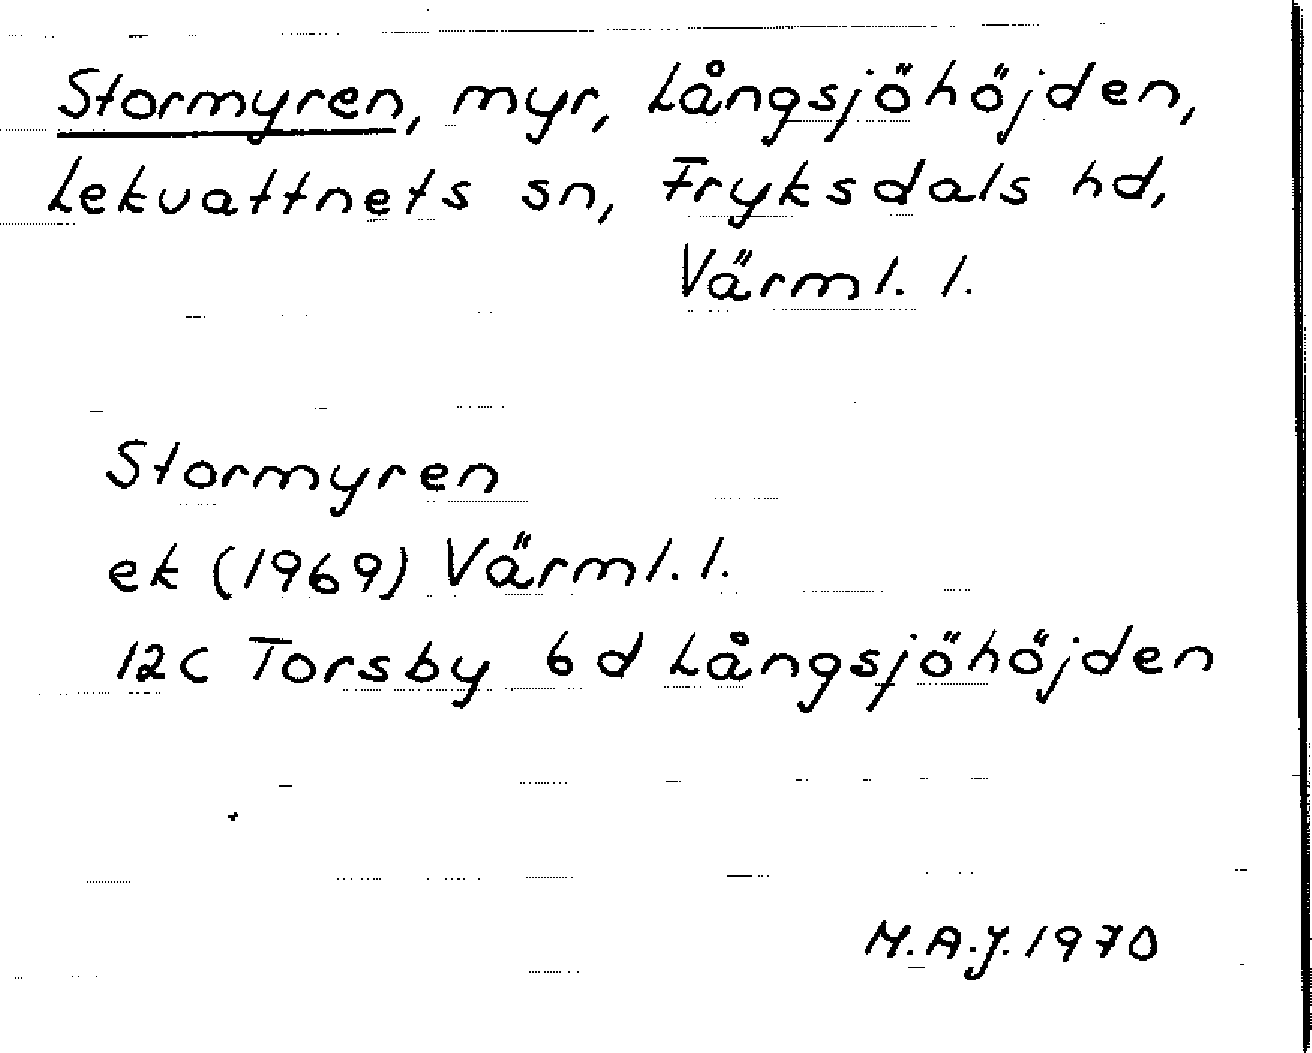 Stormyren, myr, Långsjöhöjden,
Lekvattnets sn, Fryksdals hd,
Värml. l.
Stormyren
ek (1969) Värml. l.
12C Torsby 6d Långsjöhöjden
M.A.J. 1970